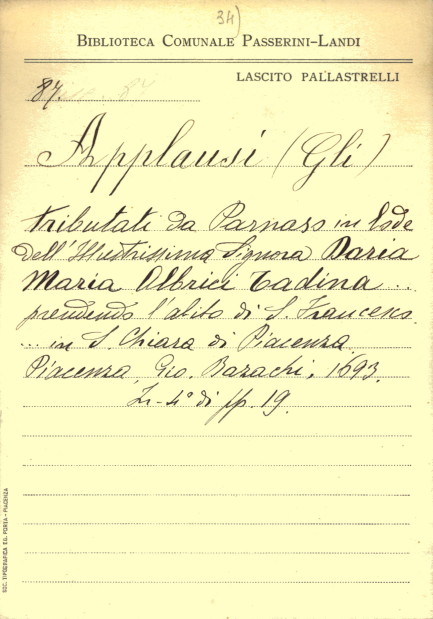 34)
BIBLIOTECA COMUNALE PASSERINI-LANDI
LASCITO PALLASTRELLI
87.
Applausi (Gli)
tributati da Parnaso in lode
dell'Illustrissima Signora Daria
Maria Albrici Tadina ...
prendendo l'abito di S. Francesco
... in S. Chiara di Piacenza.
Piacenza, Gio. Bazachi, 1693.
In-4° di pp. 19.
SOC. TIPOGRAFICA ED. PORTA - PIACENZA